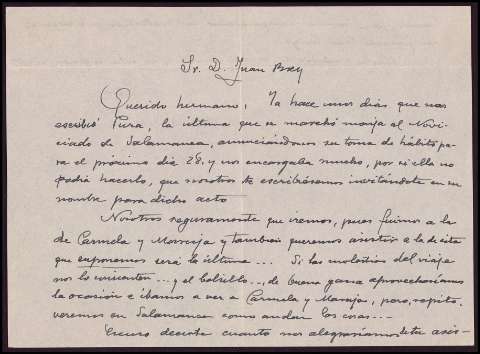 Sr. D. Juan Bsey
Querido hermano: Ya hace unos días que nos
escribió Pura, la última que se marchó monja al Novi-
ciado de Salamanca, anunciándonos su toma de hábito pa-
ra el próximo día 28, y nos encargaba mucho, por si ella no
podía hacerlo, que nosotros te escribiéramos invitándote en su
nombre para dicho acto
Nosotros seguramente que iremos, pues fuimos a la
de Carmela y Maruja y tambien queremos asistir a la de ésta
que suponemos será la última... Si las molestias del viaje
nos lo consienten... y el bolsillo..., de buena gana aprovechariamos
la ocasión e ibamos a ver a Carmela y Maruja, pero, repito,
veremos en Salamanca como andan las cosas...
Excuso decirte cuanto nos alegraríamos de tu asis-